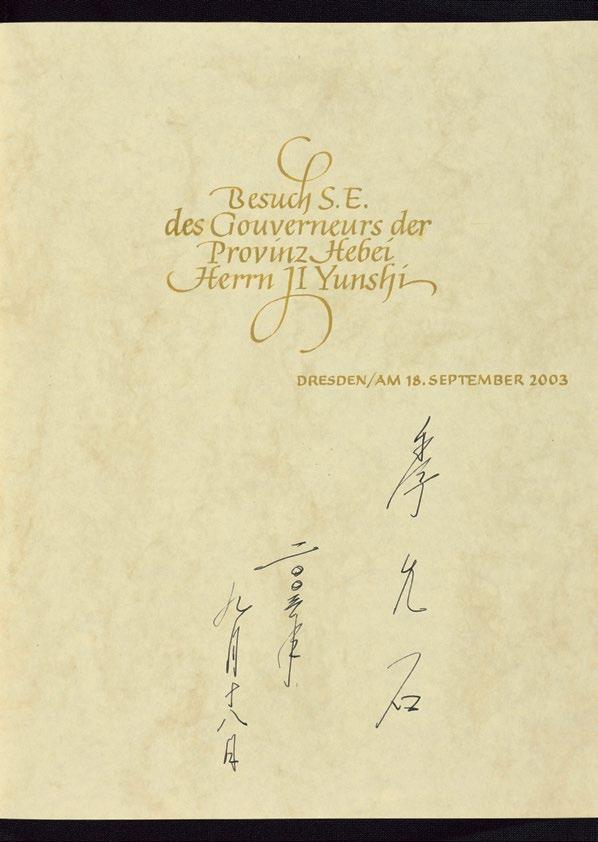 Besuch S.E.
des Gouverneurs der
Provinz Hebei
Herrn JI Yunshi
DRESDEN/AM 18. SEPTEMBER 2003
季允石
二〇〇三年
九月十八日